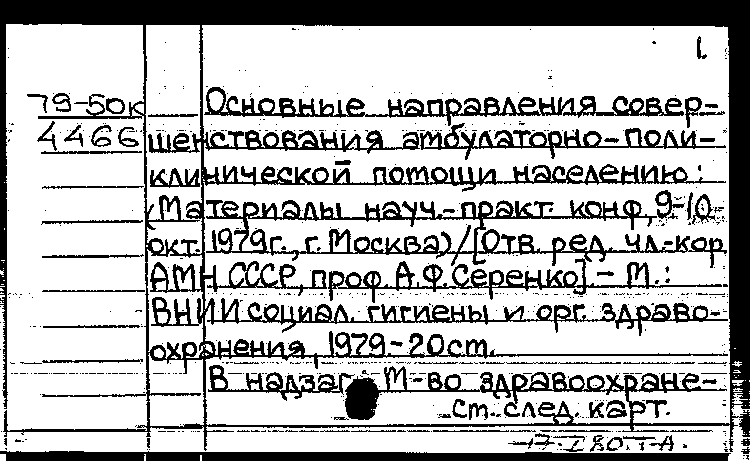 1.
79-50к
4466
Основные направления совер-
шенствования амбулаторно-поли-
клинической помощи населению:
(Материалы науч.-практ. конф, 9-10
окт. 1979г., г. Москва)/[Отв. ред. чл-кор
АМН СССР, проф. А.Ф. Серенко]. - М.:
ВНИИ социал. гигиены и орг. здраво-
охранения, 1979.- 20 ст.
В надзаг.: М-во здравоохране-
ст. след. карт.